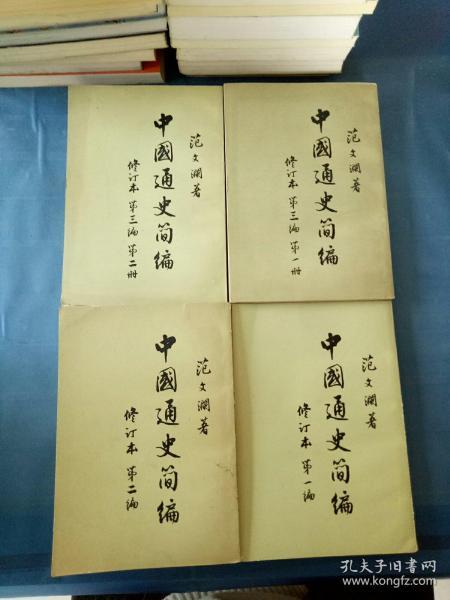 范文澜著
中國通史简编
修订本 第三编 第二册
范文澜著
中國通史简编
修订本 第三编 第一册
范文澜著
中國通史简编
修订本 第二编
范文澜著
中國通史简编
修订本 第一编
孔夫子旧书网
www.kongfz.com